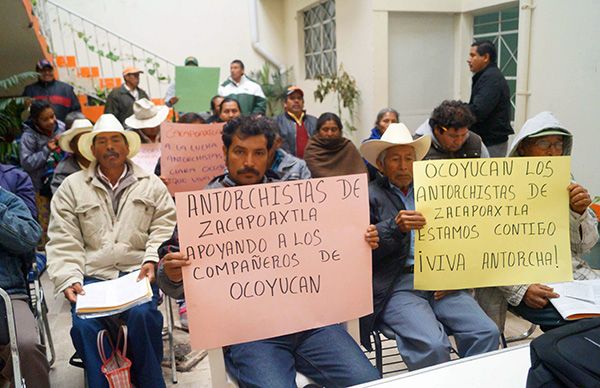 ANTORCHISTAS DE
ZACAPOAXTLA
APOYANDO A LOS
COMPAÑEROS DE
OCOYUCAN
ANTORCHISTAS DE
ZACAPOAXTLA
OCOYUCAN
ESTAMOS CONTIGO
¡VIVA ANTORCHA!
ZACAPOAXTLA
A LA LUCHA
ANTORCHISTAS